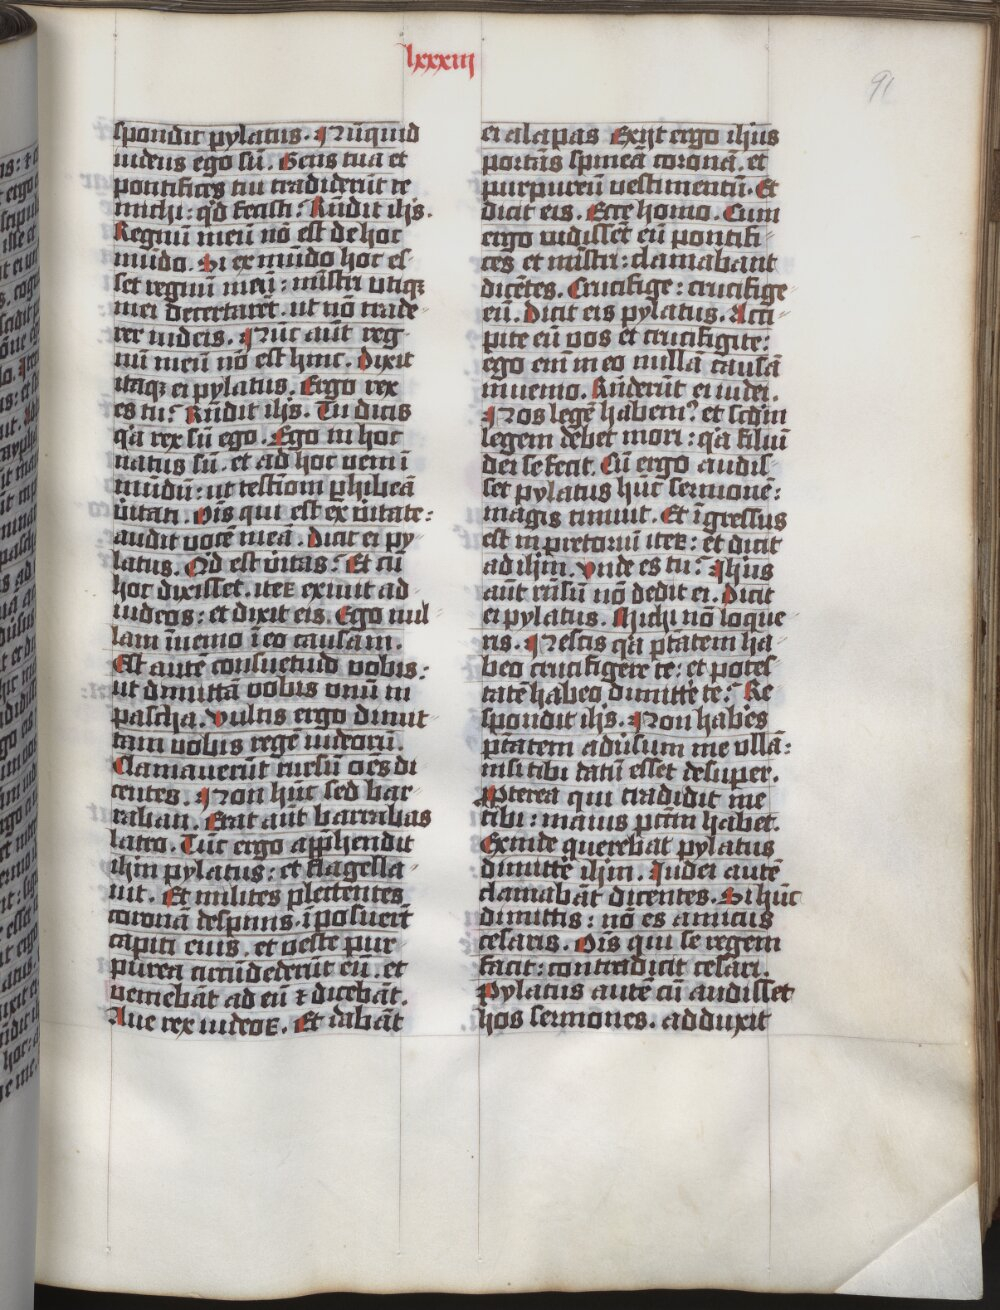 lxxxiij
91
spondit pylatus. Nūquid
iudeus ego sū. Gens tua et
pontifices tui tradiderūt te
michi: qd fecisti? Rn̄dit ih̄s.
Regnū meū nō est de hoc
mūdo. Si ex mūdo hoc es
set regnū meū: mīstri utiqꝫ
mei decertarēt. ut nō trade
rer iudeis. Nūc aūt reg
nū meū nō est hinc. Dixit
itaqꝫ ei pylatus. Ergo rex
es tu? Rn̄dit ih̄s. Tu dicis
qa rex sū ego. Ego in hoc
natus sū. et ad hoc veni ī
mūdū: ut testiom ꝑhibeā
v̄itati. Oīs qui est ex v̄itate:
audit vocē meā. Dicit ei py
latus. Qd est v̄itas? Et cū
hoc dixisset. iteꝝ exiuit ad
iudeos: et dixit eis. Ego nul
lam īuenio ī eo causam.
Est autē consuetud vobis:
ut dimittā vobis vnū in
pascha. Vultis ergo dimit
tam vobis regē iudeorū.
Clamauerūt rursū oēs di
centes. Non hūc sed bar
raban. Erat aūt barrabas
latro. Tūc ergo app̄hendit
ih̄m pylatus: et flagella
uit. Et milites plectentes
coronā de spinis. īposuerūt
capiti eius. et veste pur
purea circūdederūt eū. et
veniebāt ad eū ⁊ dicebāt.
Aue rex iudeoꝝ. Et dabāt
ei alapas Exijt ergo ih̄us
portās spineā coronā. et
purpureū vestimentū. Et
dicit eis. Ecce homo. Cum
ergo vidissēt eū pontifi
ces et mīstri: clamabant
dicētes. Crucifige: crucifige
eū. Dicit eis pylatus. Acci
pite eū vos et crucifigite:
ego enī in eo nullā causā
inuenio. Rn̄derūt ei iudei.
Nos legē habemꝰ et scd̄m
legem debet mori: qa filiū
dei se fecit. Cū ergo audis
set pylatus hūc sermonē:
magis timuit. Et īgressus
est in pretoriū iteꝝ: et dicit
ad ih̄m. Vnde es tu? Ih̄us
aūt rn̄sū nō dedit ei. Dicit
ei pylatus. Michi nō loque
ris. Nescis qa p̄tatem ha
beo crucifigere te: et potes
tatē habeo dimitte te? Re
spondit ih̄s. Non haberes
p̄tatem aduersum me vllā:
nisi tibi datū esset desuper.
Ꝓpterea qui tradidit me
tibi: maius pctm̄ habet.
Exinde querebat pylatus
dimittē ih̄m. Iudei autē
clamabāt dicentes. Si hūc
dimittis: nō es amicus
cesaris. Oīs qui se regem
facit: contradicit cesari.
Pylatus autē cū audisset
hos sermones. adduxit